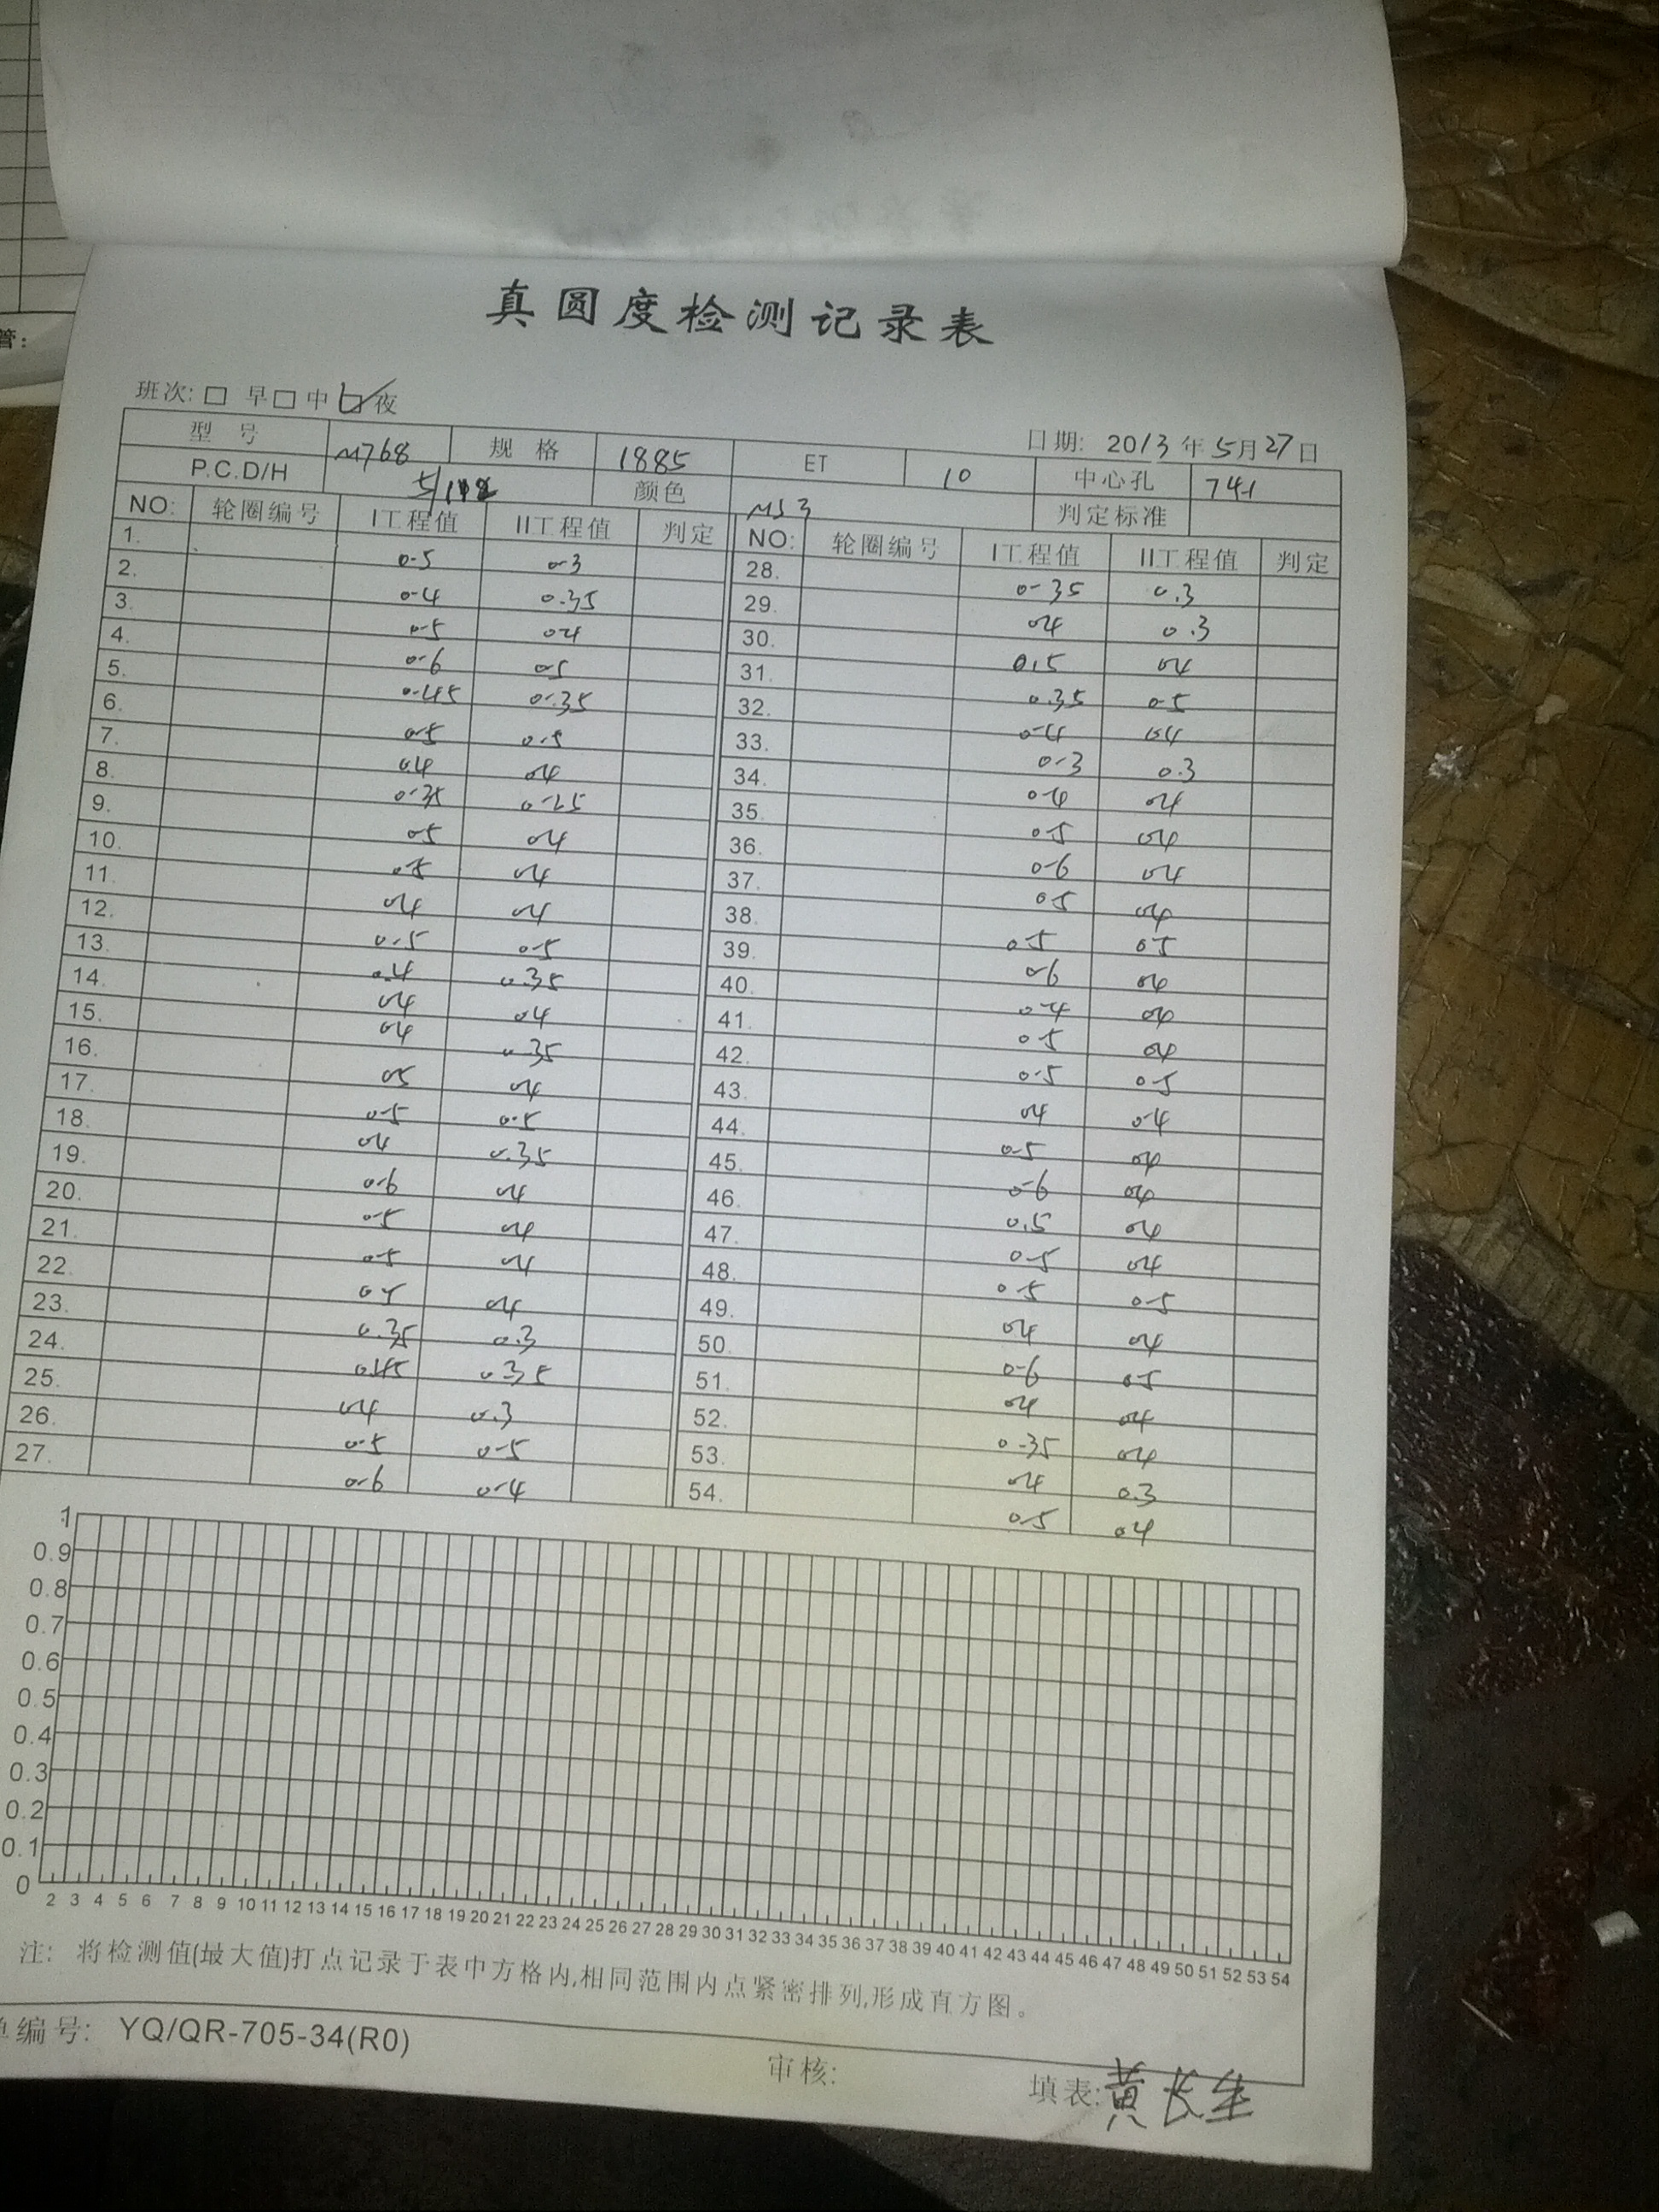 管:
真圆度检测记录表
班次: □ 早 □ 中 ☑ 夜
日期: 2013 年 5 月 27 日
型 号 M768 规 格 1885 ET 10 中心孔 741
P.C.D/H 5/112 颜色 MS3 判定标准
NO: 轮圈编号 I工程值 II工程值 判定 NO: 轮圈编号 I工程值 II工程值 判定
1. 0.5 0.3 28. 0.35 0.3
2. 0.4 0.35 29. 0.4 0.3
3. 0.5 0.4 30. 0.5 0.4
4. 0.6 0.5 31. 0.35 0.5
5. 0.45 0.35 32. 0.4 0.4
6. 0.5 0.5 33. 0.3 0.3
7. 0.4 0.4 34. 0.4 0.4
8. 0.35 0.25 35. 0.5 0.4
9. 0.5 0.4 36. 0.6 0.4
10. 0.5 0.4 37. 0.5 0.4
11. 0.4 0.4 38. 0.5 0.5
12. 0.5 0.5 39. 0.6 0.4
13. 0.4 0.35 40. 0.4 0.4
14. 0.4 0.4 41. 0.5 0.4
15. 0.4 0.35 42. 0.5 0.5
16. 0.5 0.4 43. 0.4 0.4
17. 0.5 0.5 44. 0.5 0.4
18. 0.4 0.35 45. 0.6 0.4
19. 0.6 0.4 46. 0.5 0.4
20. 0.5 0.4 47. 0.5 0.4
21. 0.5 0.4 48. 0.5 0.5
22. 0.4 49. 0.4 0.4
23. 0.35 0.3 50. 0.6 0.5
24. 0.45 0.35 51. 0.4 0.4
25. 0.4 0.3 52. 0.35 0.4
26. 0.5 0.5 53. 0.4 0.3
27. 0.6 0.4 54. 0.5 0.4
1
0.9
0.8
0.7
0.6
0.5
0.4
0.3
0.2
0.1
0
2 3 4 5 6 7 8 9 10 11 12 13 14 15 16 17 18 19 20 21 22 23 24 25 26 27 28 29 30 31 32 33 34 35 36 37 38 39 40 41 42 43 44 45 46 47 48 49 50 51 52 53 54
注: 将检测值(最大值)打点记录于表中方格内,相同范围内点紧密排列,形成直方图。
单编号: YQ/QR-705-34(R0)
审核:
填表: 黄长生